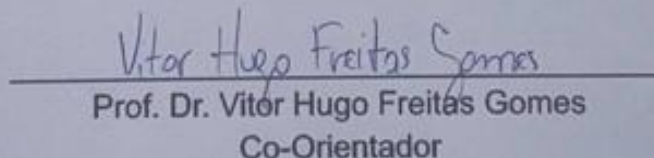 Vitor Hugo Freitas Gomes
Prof. Dr. Vitor Hugo Freitas Gomes
Co-Orientador